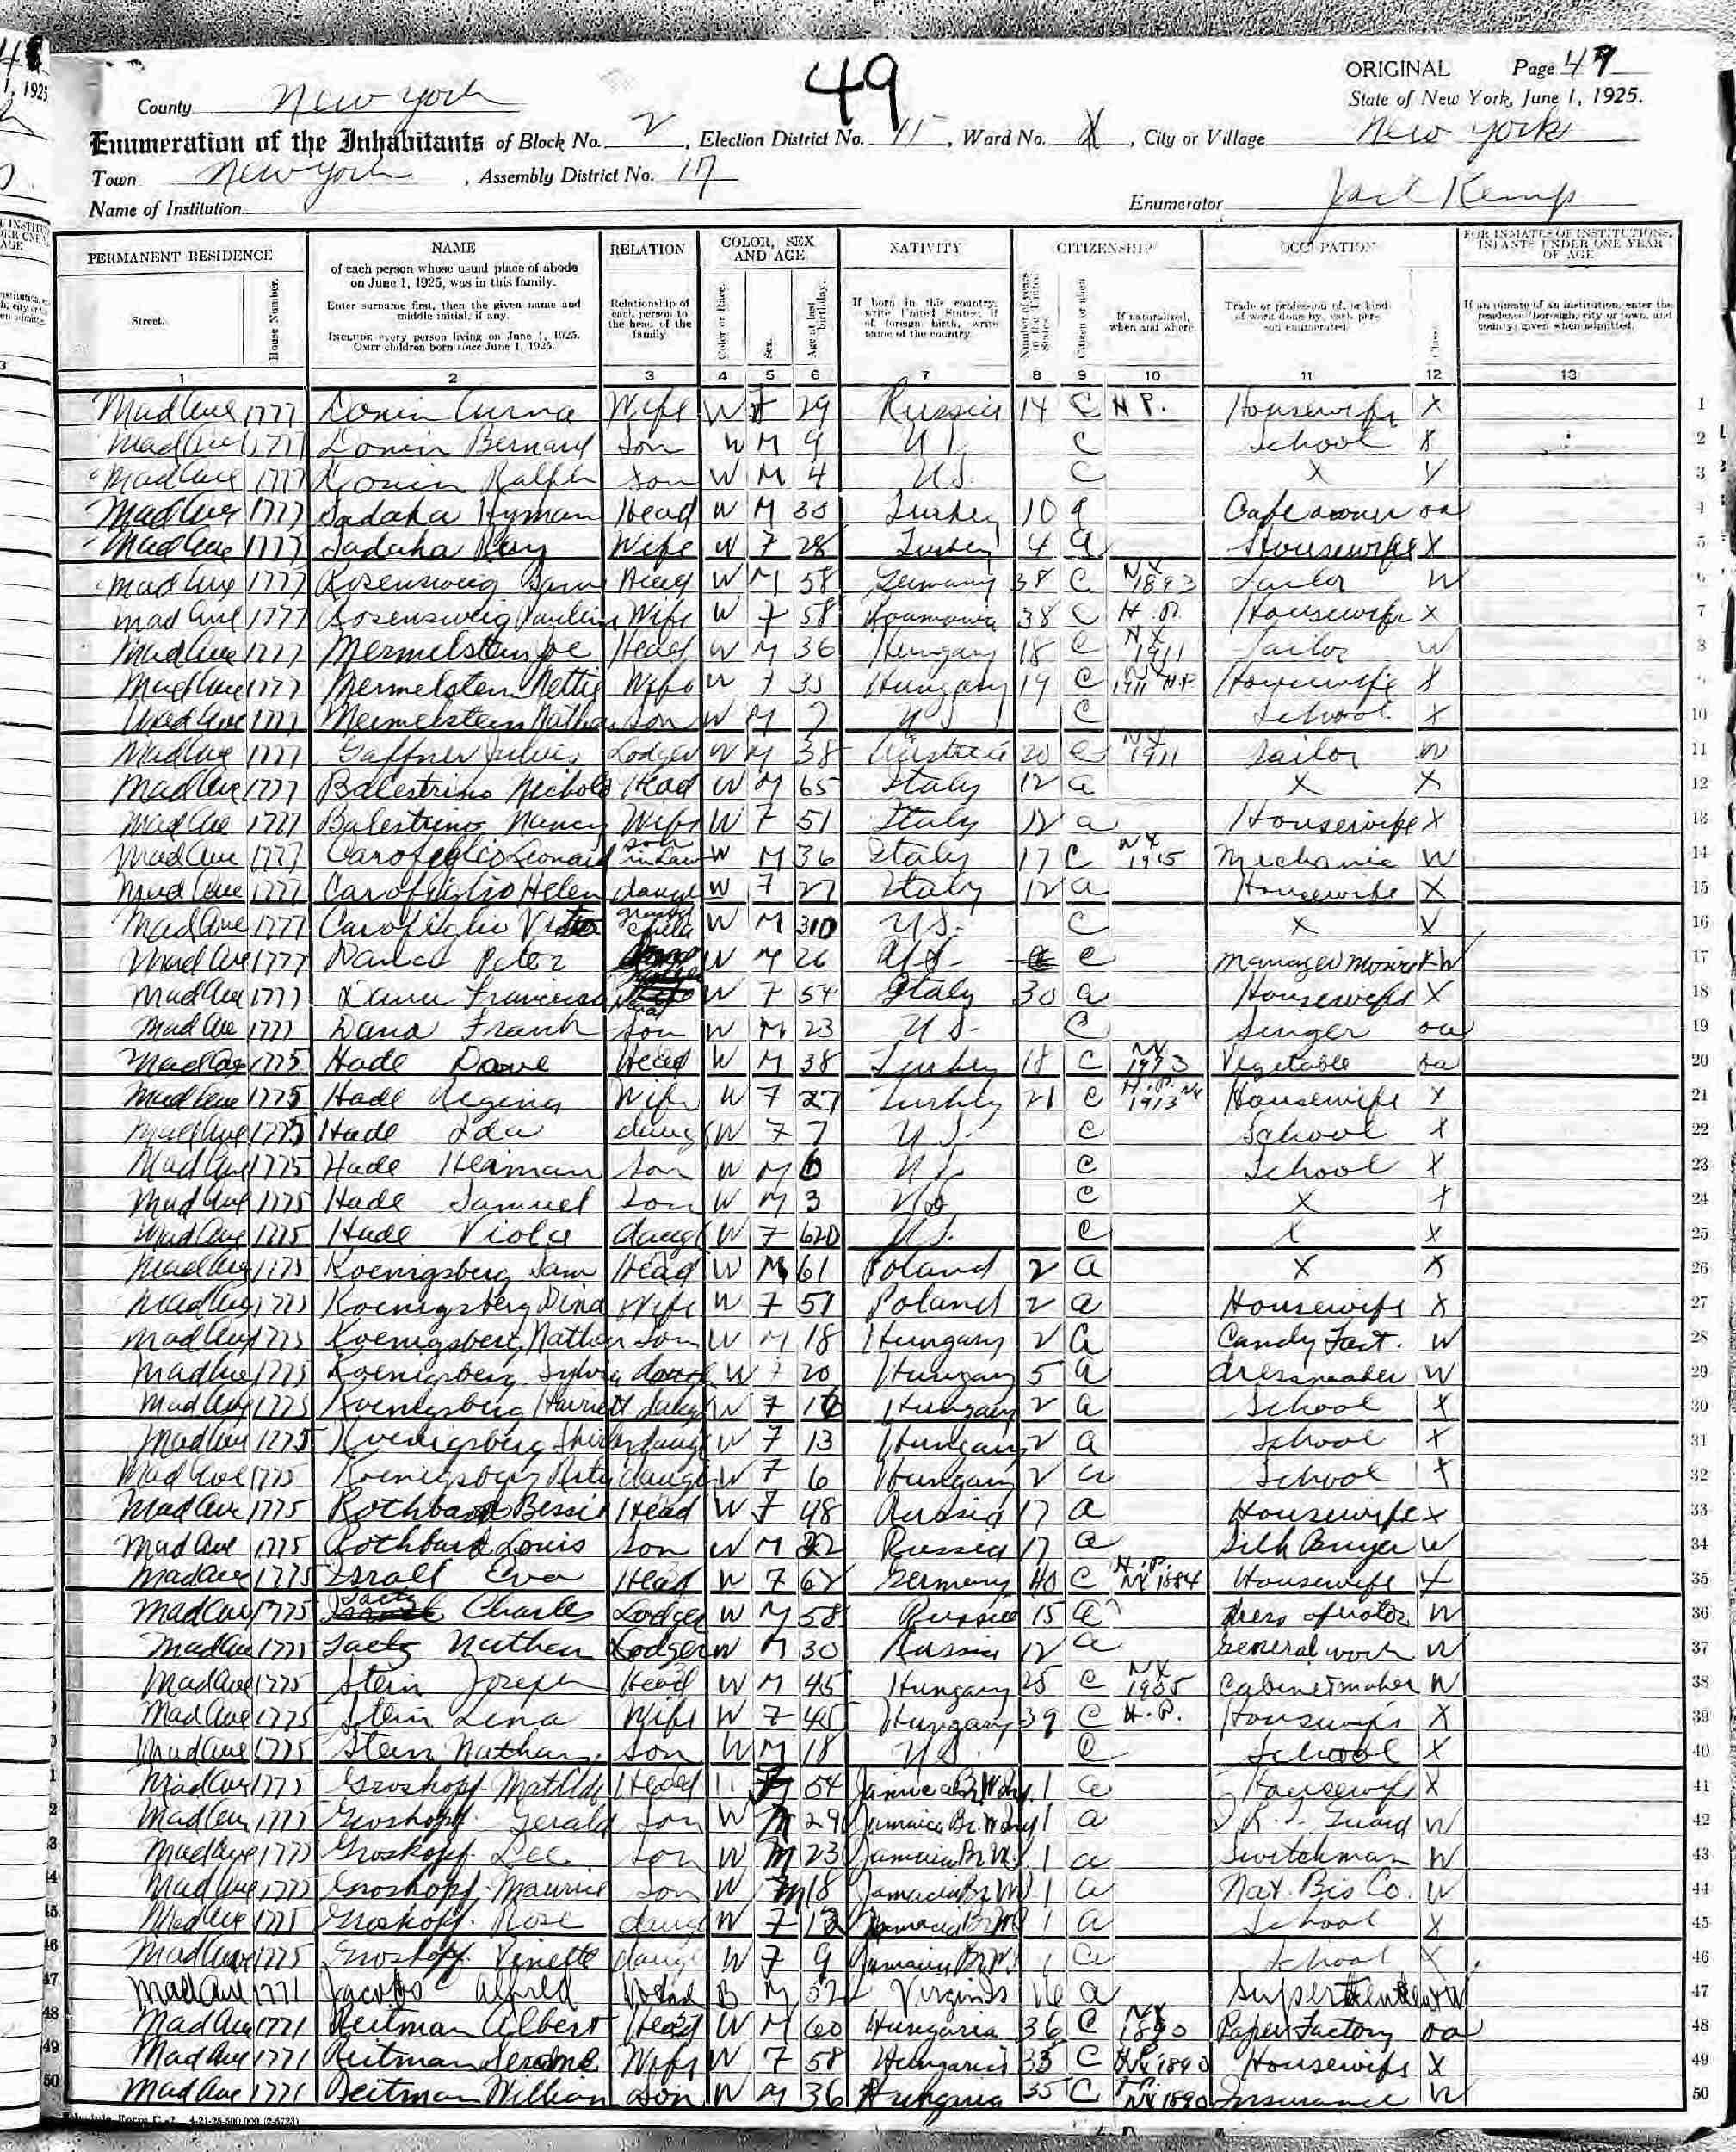 49
ORIGINAL Page 49
State of New York, June 1, 1925.
County New York
Enumeration of the Inhabitants of Block No. 2, Election District No. 15, Ward No. X, City or Village New York
Town New York, Assembly District No. 17
Name of Institution Enumerator Jack Kemp
PERMANENT RESIDENCE NAME RELATION COLOR, SEX AND AGE NATIVITY CITIZENSHIP OCCUPATION FOR INMATES OF INSTITUTIONS, INFANTS UNDER ONE YEAR OF AGE
Street. House Number.
of each person whose usual place of abode on June 1, 1925, was in this family.
Enter surname first, then the given name and middle initial, if any.
INCLUDE every person living on June 1, 1925. OMIT children born since June 1, 1925.
Relationship of each person to the head of the family
Color or Race. Sex. Age at last birthday.
If born in this country, write United States; if of foreign birth, write name of the country.
Number of years in the United States Citizen or alien If naturalized, when and where
Trade or profession of, or kind of work done by, each person enumerated. Class
If an inmate of an institution, enter the residence (borough, city or town, and county) given when admitted.
1 2 3 4 5 6 7 8 9 10 11 12 13
Mad Ave 1777 Wife W F 29 Russia 14 C H P. Housewife X 1
Mad Ave 1777 Bernard Son W M 9 U S. C School X 2
Mad Ave 1777 Ralph Son W M 4 U.S. C X X 3
Mad Ave 1777 Sadaka Hyman Head W M 30 Turkey 10 a Cafe owner oa 4
Mad Ave 1777 Sadaka Wife W F 28 Turkey 4 a Housewife X 5
Mad Ave 1777 Rosensweig Sam Head W M 58 Germany 38 C NY 1893 Tailor W 6
Mad Ave 1777 Rosensweig Paulin Wife W F 58 Roumania 38 C H. P. Housewife X 7
Mad Ave 1777 Mermelstein Joe Head W M 36 Hungary 18 C NY 1911 Tailor W 8
Mad Ave 1777 Mermelstein Nettie Wife W F 35 Hungary 19 C NY 1911 H.P. Housewife X 9
Mad Ave 1777 Mermelstein Nathan Son W M 7 U S C School X 10
Mad Ave 1777 Gaffner Julius Lodger W M 38 Austria 20 C NY 1911 Tailor W 11
Mad Ave 1777 Balestrino Nichols Head W M 65 Italy 12 a X X 12
Mad Ave 1777 Balestrino Nancy Wife W F 51 Italy 12 a Housewife X 13
Mad Ave 1777 Carofiglio Leonard son in Law W M 36 Italy 17 C NY 1915 Mechanic W 14
Mad Ave 1777 Carofiglio Helen daug W F 27 Italy 12 a Housewife X 15
Mad Ave 1777 Carofiglio Victor grand child W M U.S. C X X 16
Mad Ave 1777 Peter W M 26 U.S. C Manager W 17
Mad Ave 1777 Head W F 54 Italy 30 a Housewife X 18
Mad Ave 1777 Dana Frank Son W M 23 U S. C Singer oa 19
Mad Ave 1775 Hade Dave Head W M 38 Turkey 18 C NY 1913 Vegetable oa 20
Mad Ave 1775 Hade Regina Wife W F 27 Turkey 21 C H.P. NY 1913 Housewife X 21
Mad Ave 1775 Hade Ida daug W F 7 U.S. C School X 22
Mad Ave 1775 Hade Herman Son W M 6 U S. C School X 23
Mad Ave 1775 Hade Samuel Son W M 3 U S. C X X 24
Mad Ave 1775 Hade Viola daug W F U.S. C X X 25
Mad Ave 1775 Koenigsberg Sam Head W M 61 Poland 2 a X X 26
Mad Ave 1775 Koenigsberg Dina Wife W F 51 Poland 2 a Housewife X 27
Mad Ave 1775 Koenigsberg Nathan Son W M 18 Hungary 2 a Candy Fact. W 28
Mad Ave 1775 Koenigsberg Sylvia daug W F 20 Hungary 5 a dressmaker W 29
Mad Ave 1775 Koenigsberg Harriett daug W F 16 Hungary 2 a School X 30
Mad Ave 1775 Koenigsberg daug W F 13 Hungary 2 a School X 31
Mad Ave 1775 Koenigsberg Rita daug W F 6 Hungary 2 a School X 32
Mad Ave 1775 Rothbart Bessie Head W F 48 Russia 17 a Housewife X 33
Mad Ave 1775 Rothbart Louis Son W M 22 Russia 17 a Silk Buyer W 34
Mad Ave 1775 Israel Eva Head W F 62 Germany 40 C H.P. NY 1884 Housewife X 35
Mad Ave 1775 Charles Lodger W M 58 Russia 15 a dress operator W 36
Mad Ave 1775 Nathan Lodger W M 30 Russia 12 a General work W 37
Mad Ave 1775 Stein Joseph Head W M 45 Hungary 25 C NY 1905 Cabinetmaker W 38
Mad Ave 1775 Stein Lena Wife W F 45 Hungary 39 C H.P. Housewife X 39
Mad Ave 1775 Stein Nathan Son W M 18 U S. C School X 40
Mad Ave 1775 Groskopf Matilda Head F 54 Jamaica 1 a Housewife X 41
Mad Ave 1775 Groskopf Gerald Son W M 29 Jamaica 1 a I.R.T. Guard W 42
Mad Ave 1775 Groskopf Lee Son W M 23 Jamaica 1 a Switchman W 43
Mad Ave 1775 Groskopf Maurice Son W M 18 Jamacia 1 a Nat. Bis Co. W 44
Mad Ave 1775 Groskopf Rose daug W F 12 Jamacia 1 a School X 45
Mad Ave 1775 Groskopf Vinette daug W F 9 Jamaica 1 a School X 46
Mad Ave 1771 Jacobs Alfred Head B M 52 Virginia 16 a W 47
Mad Ave 1771 Reitman Albert Head W M 60 Hungaria 36 C NY 1890 Paper Factory oa 48
Mad Ave 1771 Reitman Wife W F 58 Hungaria 33 C NY 1890 Housewife X 49
Mad Ave 1771 Reitman William Son W M 36 Hungria 35 C NY 1890 Insurance W 50